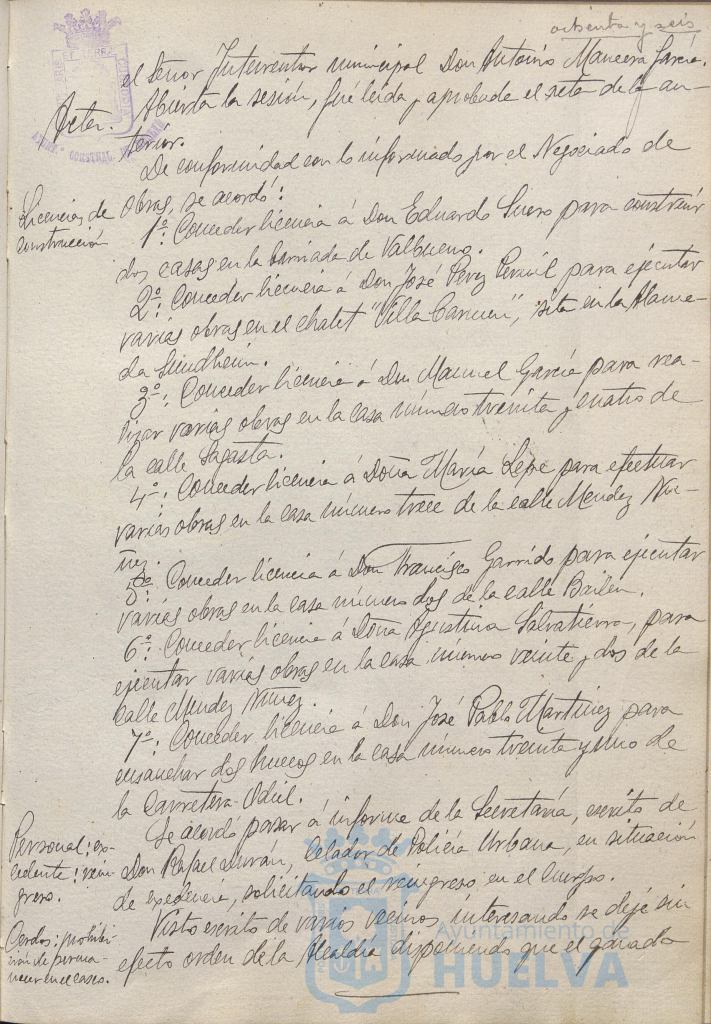 ochenta y seis
el Señor Interventor municipal Don Antonio Mancera García.
Acta. Abierta la sesión, fué leída y aprobada el acta de la an-
terior.
De conformidad con lo informado por el Negociado de
Licencias de construcción
Obras, se acordó:
1º: Conceder licencia á Don Eduardo Suero para construir
dos casas en la barriada de Valbueno.
2º: Conceder licencia á Don José Pérez para ejecutar
varias obras en el chalet "Villa Carmen", sita en la Alame-
da Sundheim.
3º: Conceder licencia á Don Manuel García para rea-
lizar varias obras en la casa número treinta y cuatro de
la calle Sagasta.
4º: Conceder licencia á Doña María Lepe para efectuar
varias obras en la casa número trece de la calle Mendez Nú-
ñez.
5º: Conceder licencia á Don Francisco Garrido para ejecutar
varias obras en la casa número dos de la calle Bailen.
6º: Conceder licencia á Doña Agustina Salvatierra, para
ejecutar varias obras en la casa número veinte y dos de la
calle Mendez Núñez.
7º: Conceder licencia á Don José Pablo Martínez para
ensanchar dos huecos en la casa número treinta y uno de
la Carretera Odiel.
Personal: ex-
cedente: rein-
greso.
Se acordó pasar á informe de la Secretaría, escrito de
Don Rafael Durán, Celador de Policía Urbana, en situación
de excedencia, solicitando el reingreso en el Cuerpo.
Cerdos: prohibi-
ción de perma-
necer en el casco.
Visto escrito de varios vecinos, interesando se deje sin
efecto orden de la Alcaldía disponiendo que el ganado
Ayuntamiento de
HUELVA